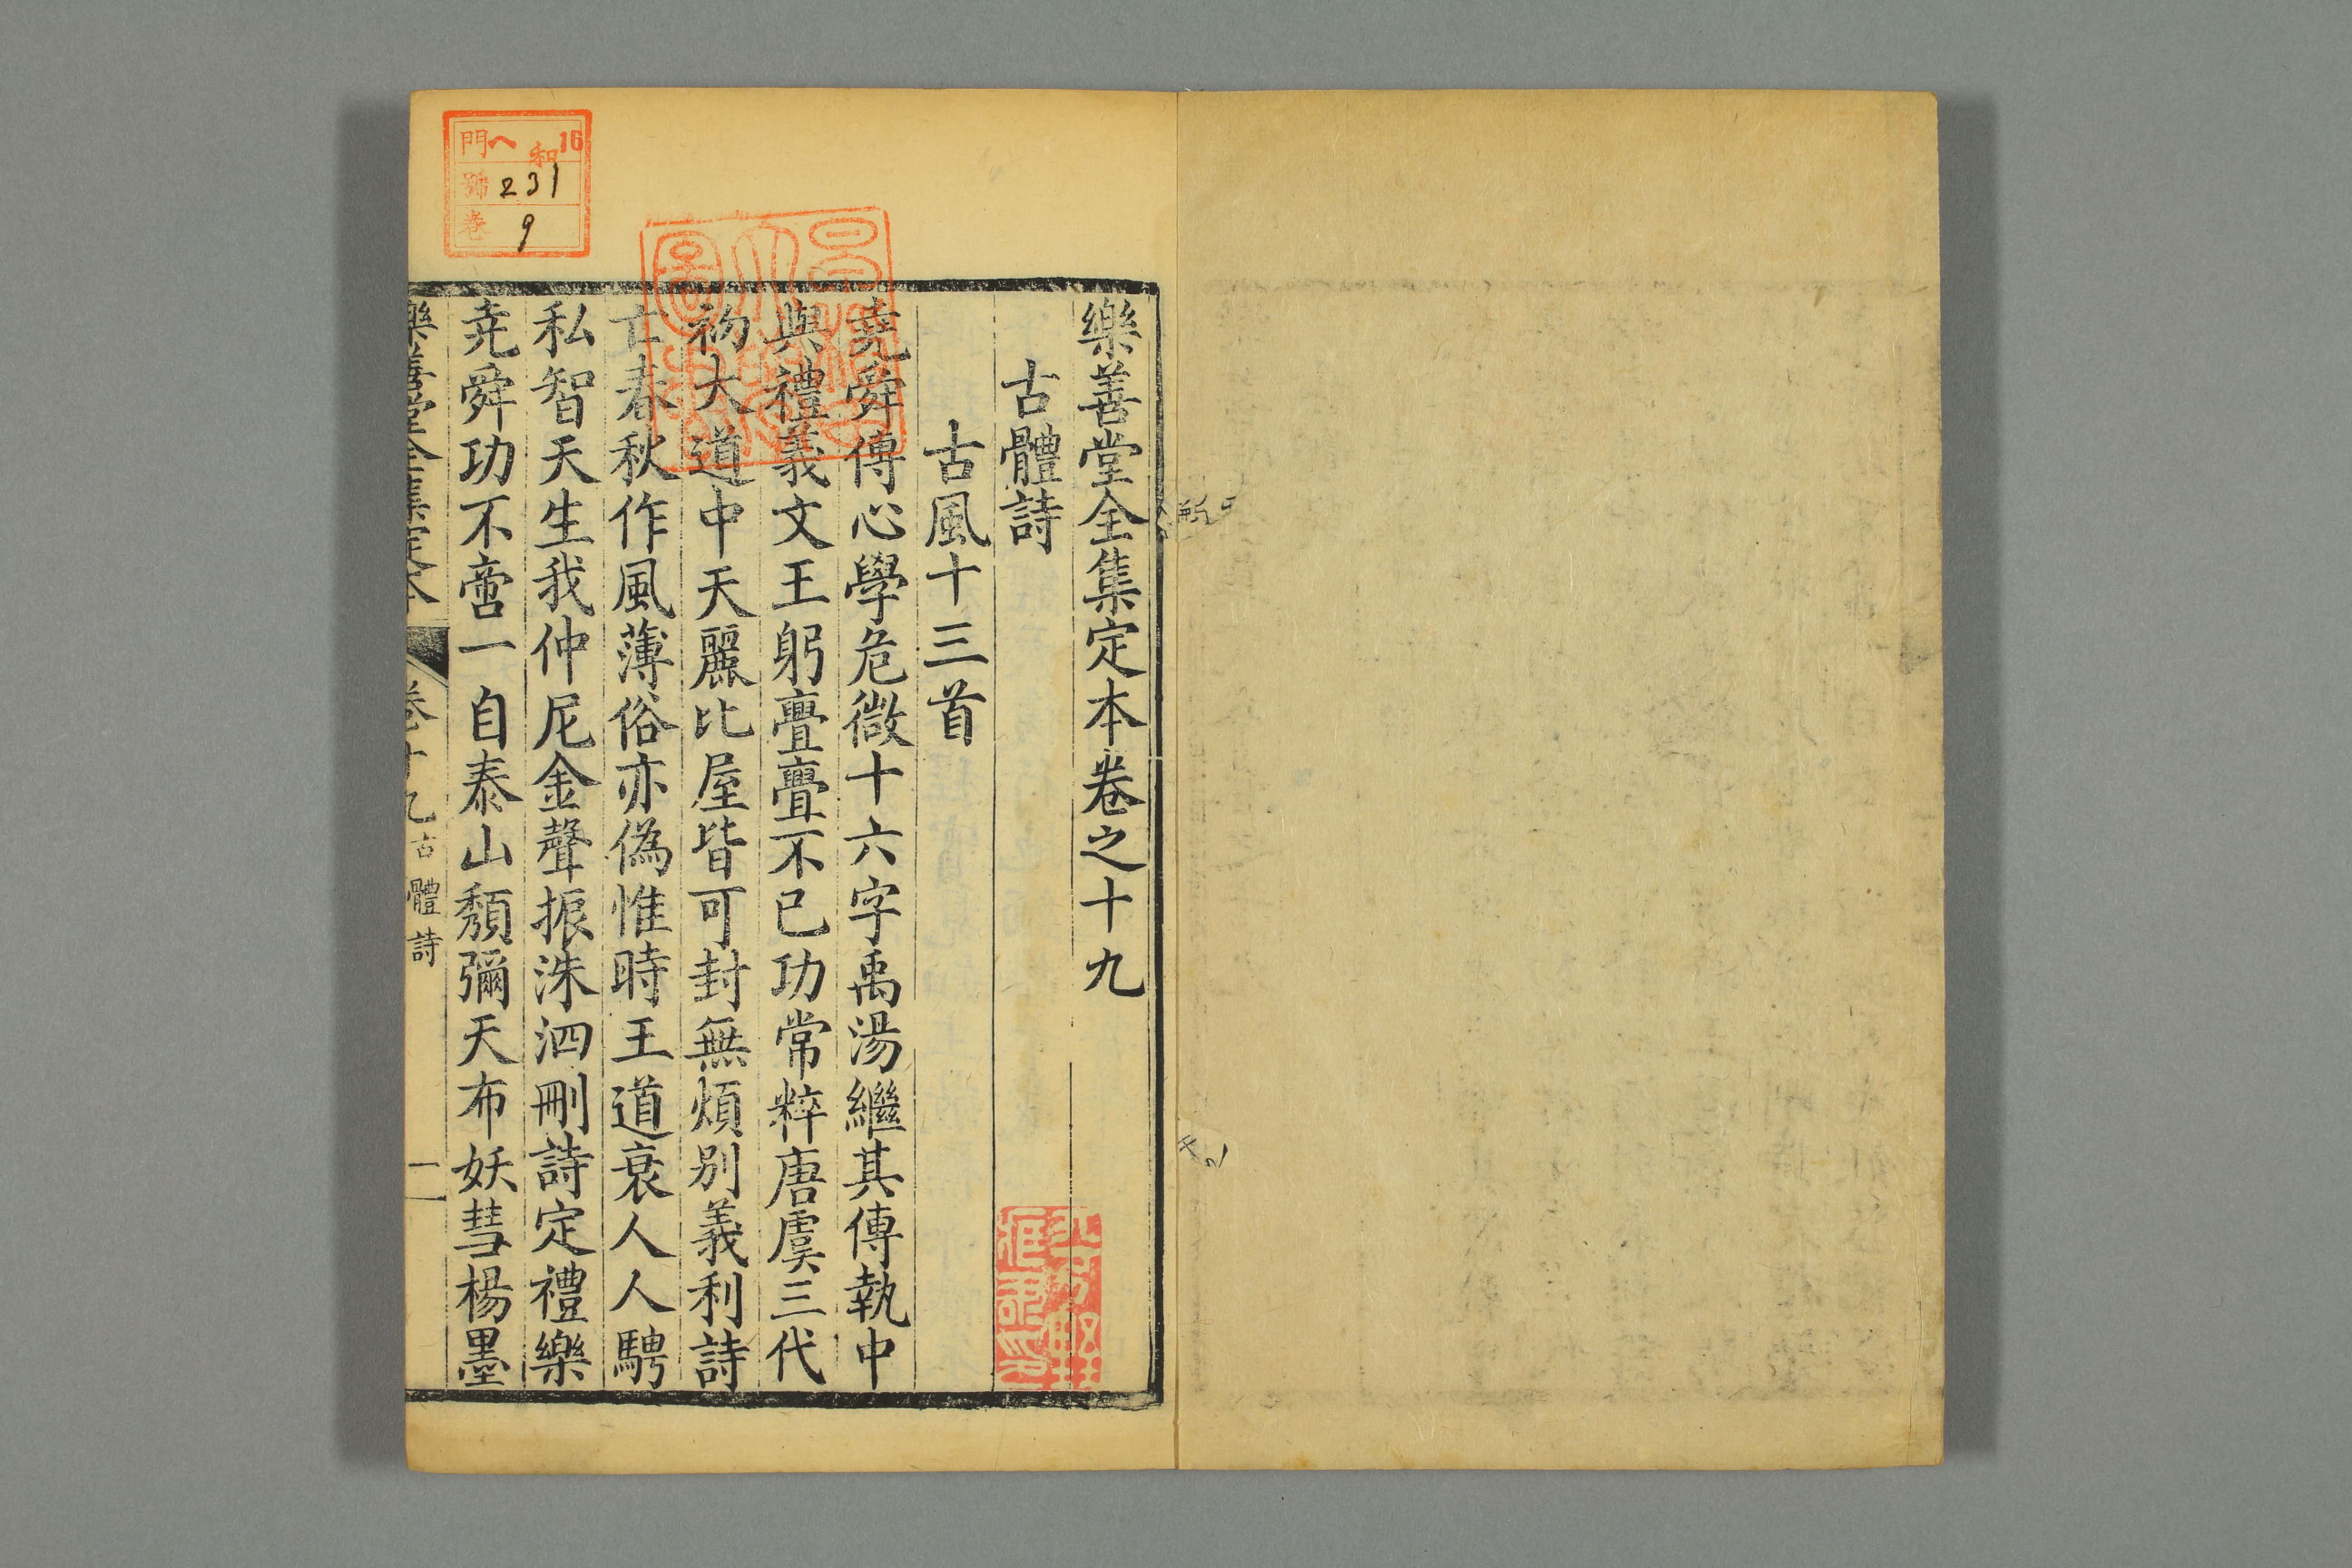 樂善堂全集定本卷之十九
古體詩
古風十三首
堯舜傳心學危微十六字禹湯繼其傳執中
與禮義文王躬亹亹不已功常粹唐虞三代
初大道中天麗比屋皆可封無煩別義利詩
亡春秋作風薄俗亦偽惟時王道衰人人騁
私智天生我仲尼金聲振洙泗刪詩定禮樂
堯舜功不啻一自泰山頹彌天布妖彗楊墨
樂善堂全集定本 卷十九 古體詩 一
門 ヘ16 和
號 231
卷 9